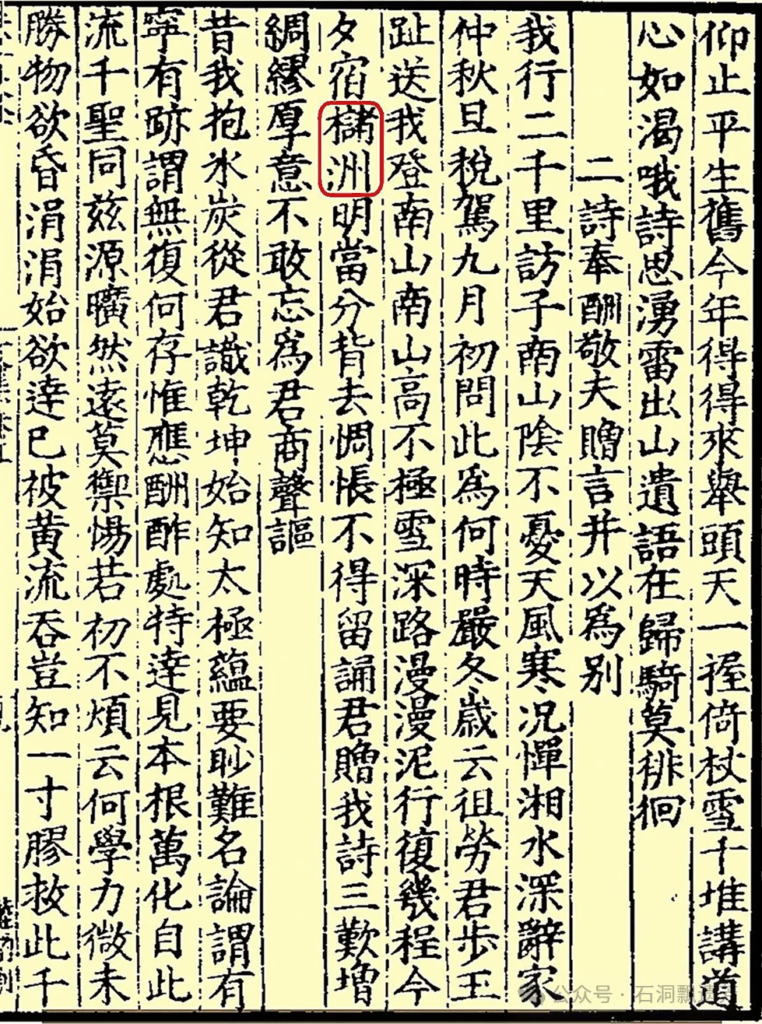 仰止平生舊今年得得來舉頭天一握倚杖雪千堆講道
心如渴哦詩思湧雷出山遺語在歸騎莫徘徊
二詩奉酬敬夫贈言并以為别
我行二千里訪子南山陰不憂天風寒況憚湘水深辭家
仲秋旦稅駕九月初問此為何時嚴冬歲云徂勞君步玉
趾送我登南山南山高不極雪深路漫漫泥行復幾程今
夕宿櫧洲明當分背去惆悵不得留誦君贈我詩三歎增
綢繆厚意不敢忘為君商聲謳
昔我抱氷炭從君識乾坤始知太極蘊要眇難名論謂有
寧有跡謂無復何存惟應酬酢處特達見本根萬化自此
流千聖同茲源曠然遠莫禦惕若初不煩云何學力微未
勝物欲昏涓涓始欲達已被黃流吞豈知一寸膠救此千
公众号 · 石洞飘